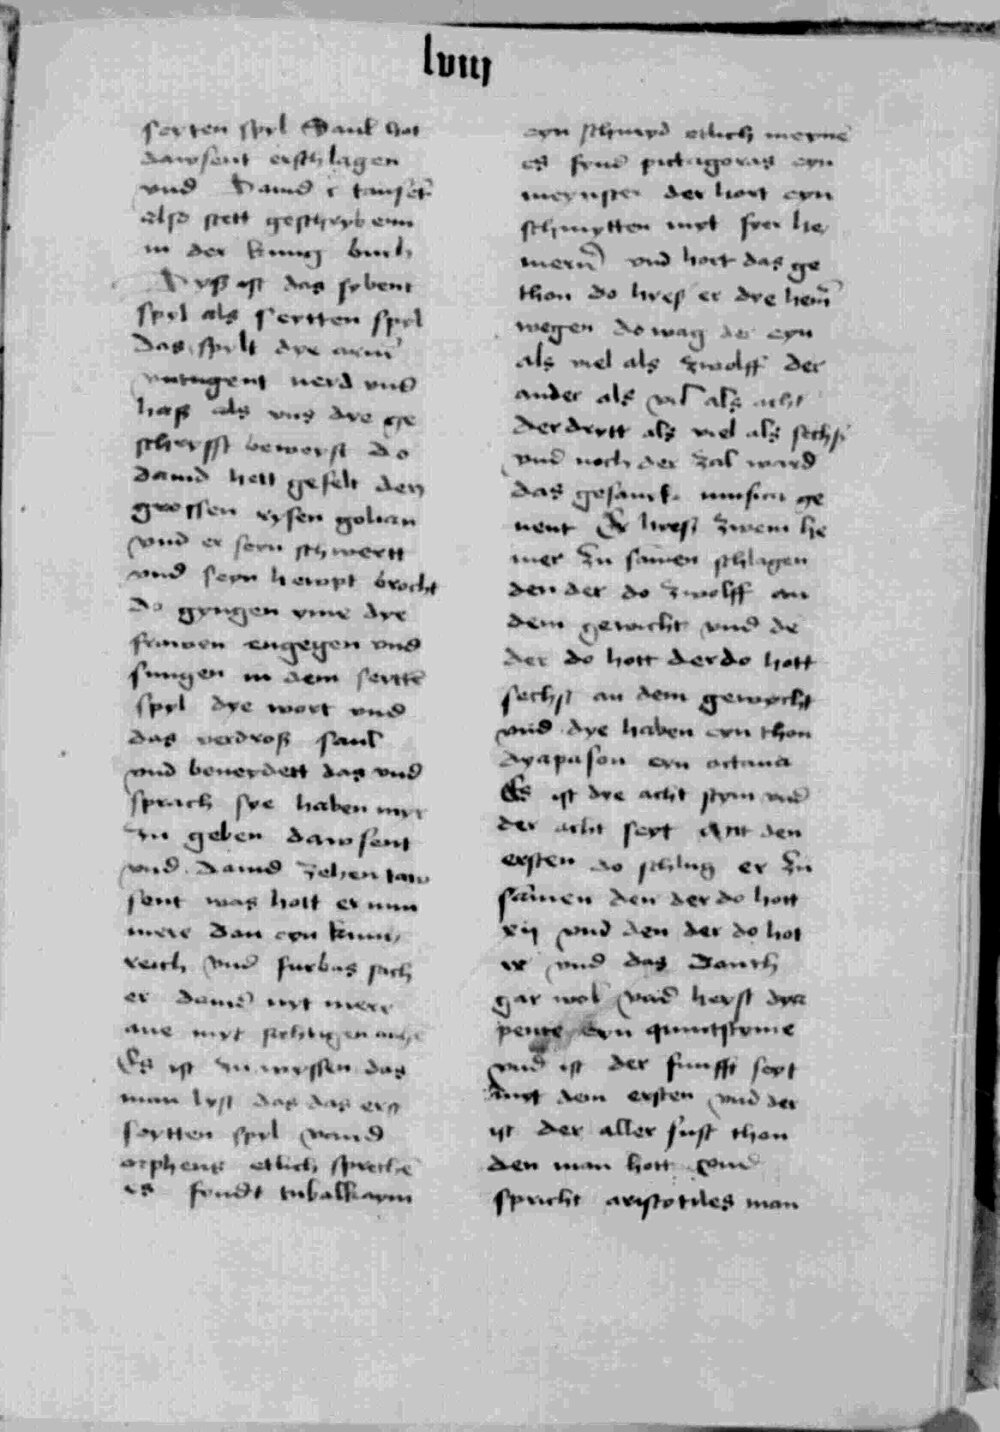 lviij
seyten spyl Saul hot
dawsent erschlagen
vnd Dauid x tausēt
also stett geschrybenn
in der kunig buch
Dyß ist das sybent
spyl als seytten spyl
das spylt dye arm
vntugent neyd vnd
haß als vns dye ge
schryfft beweyst do
dauid hett gefelt den
grossen rysen golian
vnd er seyn schwertt
vnd seyn hewpt brocht
do gyngen yme dye
frawen engegen vnd
sungen in dem seyttē
spyl dye wort vnd
das verdroß saul
vnd beneydett das vnd
sprach sye haben myr
zu geben dawsent
vnd dauid zehen taw
sent was hott er nun
mere dan eyn kunig
reich vnd furbas sach
er dauid nyt mere
ane myt
Es ist zu wyssen das
man lyst das das erst
seytten spyl vand
orpheus etlich sprechē
es fondt tubalkaym
eyn schmyd etlich meynē
es fynd pictagoras eyn
meynster der hort eyn
schmytten myt fyer he
mern vnd hort das ge
thon do hyeß er dye hem̄
wegen do wag der eyn
als viel als zwolff der
ander als vil als acht
der drytt als viel als sechß
vnd noch der zal ward
das gesanck musica ge
nent Er hyeß zwem he
mer zu samen schlagen
den der do zwolff an
dem gewicht vnd dē
der do hott der do hott
sechß an dem gewycht
vnd dye haben eyn thon
dyapason eyn octaua
Es ist dye acht stym vnd
der acht seyt Mit den
ersten do schlug er zu
samen den der do hott
xij vnd den der do hot
ix vnd das dauch
gar wol vnd heyst dya
pente eyn quintstyme
vnd ist der funfft seyt
myt dem ersten vnd der
ist der aller sust thon
den man hott vnd
spricht aristotiles man